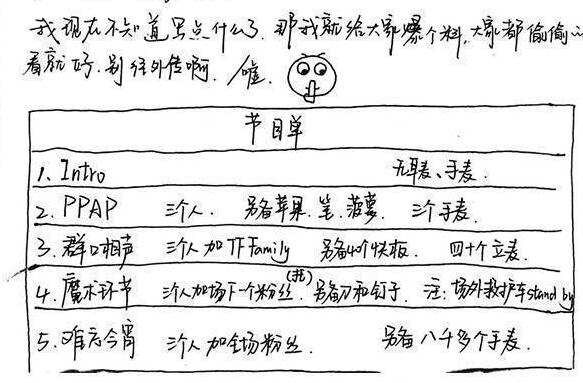 我现在不知道写点什么了,那我就给大家爆个料,大家都偷偷
看就好,别往外传啊.嘘.
节目单
1. Intro 无耳麦、手麦.
2. PPAP 三个人. 另备苹果.笔.菠萝. 三个手麦.
3. 群口相声 三个人加TF Family 另备40个快板. 四十个立麦.
4. 魔术环节 三个人加场下一个粉丝(托).另备刀和钉子. 注:场外救护车stand by
5. 难忘今宵 三个人加全场粉丝. 另备八千多个手麦.